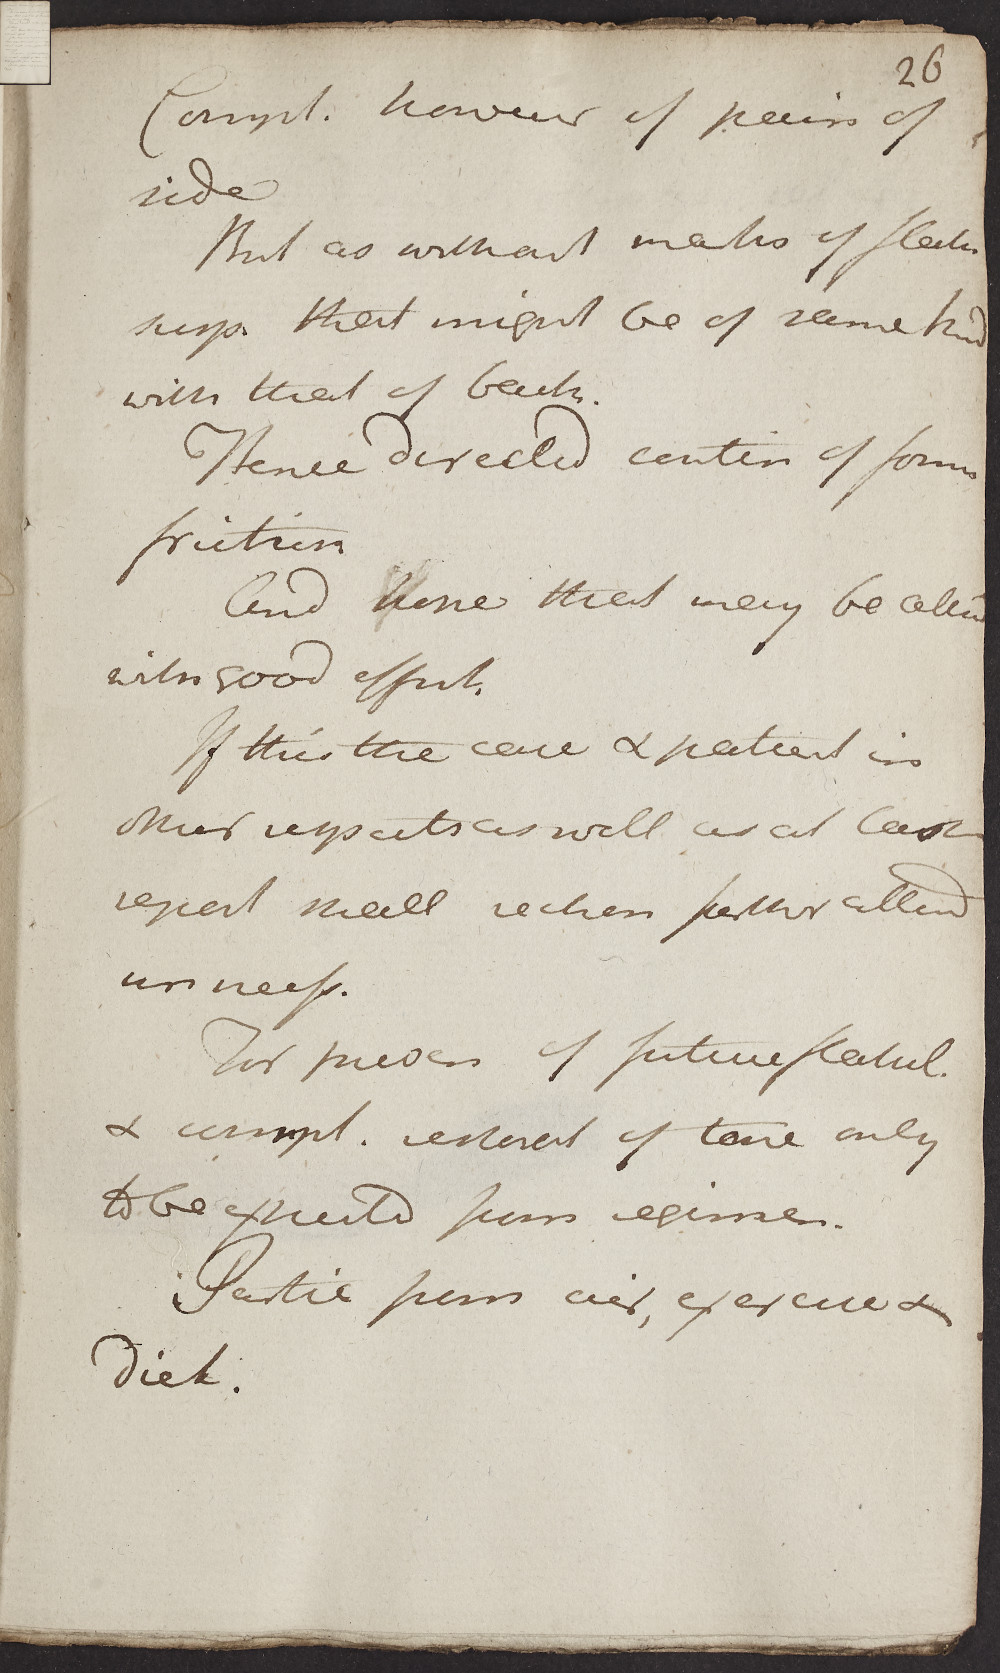 26
Compl. however of pain of
side
But as without marks of flatu
susp. that might be of same kind
with that of back.
Hence directed contin of form
friction
And hope that may be attend
with good effect.
If this the case & patient in
other respects as well as at last
report shall reckon farther attend
unnecess.
For preven of future flatul.
& compl. restorat of tone only
to be expected from regimen.
Partic from air, exercise &
Diet.